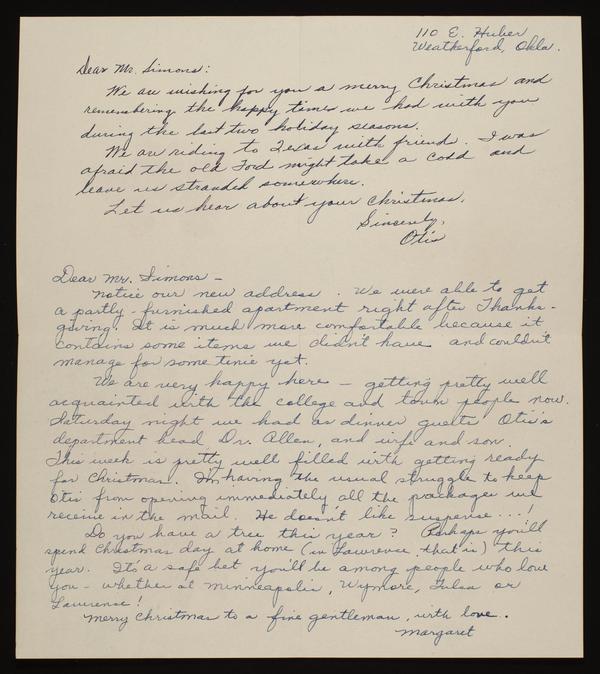 110 E. Huber
Weatherford, Okla.
Dear Mr. Simons:
We are wishing for you a merry Christmas and
remembering the happy times we had with you
during the last two holiday seasons.
We are riding to Texas with friend. I was
afraid the old Ford might take a cold and
leave us stranded somewhere.
Let us hear about your Christmas.
Sincerely,
Otis
Dear Mr. Simons –
Notice our new address. We were able to get
a partly-furnished apartment right after Thanks-
giving. It is much more comfortable because it
contains some items we didn't have and couldn't
manage for some time yet.
We are very happy here – getting pretty well
acquainted with the college and town people now.
Saturday night we had as dinner guests Otis's
department head Dr. Allen, and wife and son.
This week is pretty well filled with getting ready
for Christmas. I'm having the usual struggle to keep
Otis from opening immediately all the packages we
receive in the mail. He doesn't like suspense...!
Do you have a tree this year? Perhaps you'll
spend Christmas day at home (in Lawrence, that is) this
year. It's a safe bet you'll be among people who love
you – whether at Minneapolis, Wymore, Tulsa or
Lawrence!
Merry Christmas to a fine gentleman, with love.
Margaret